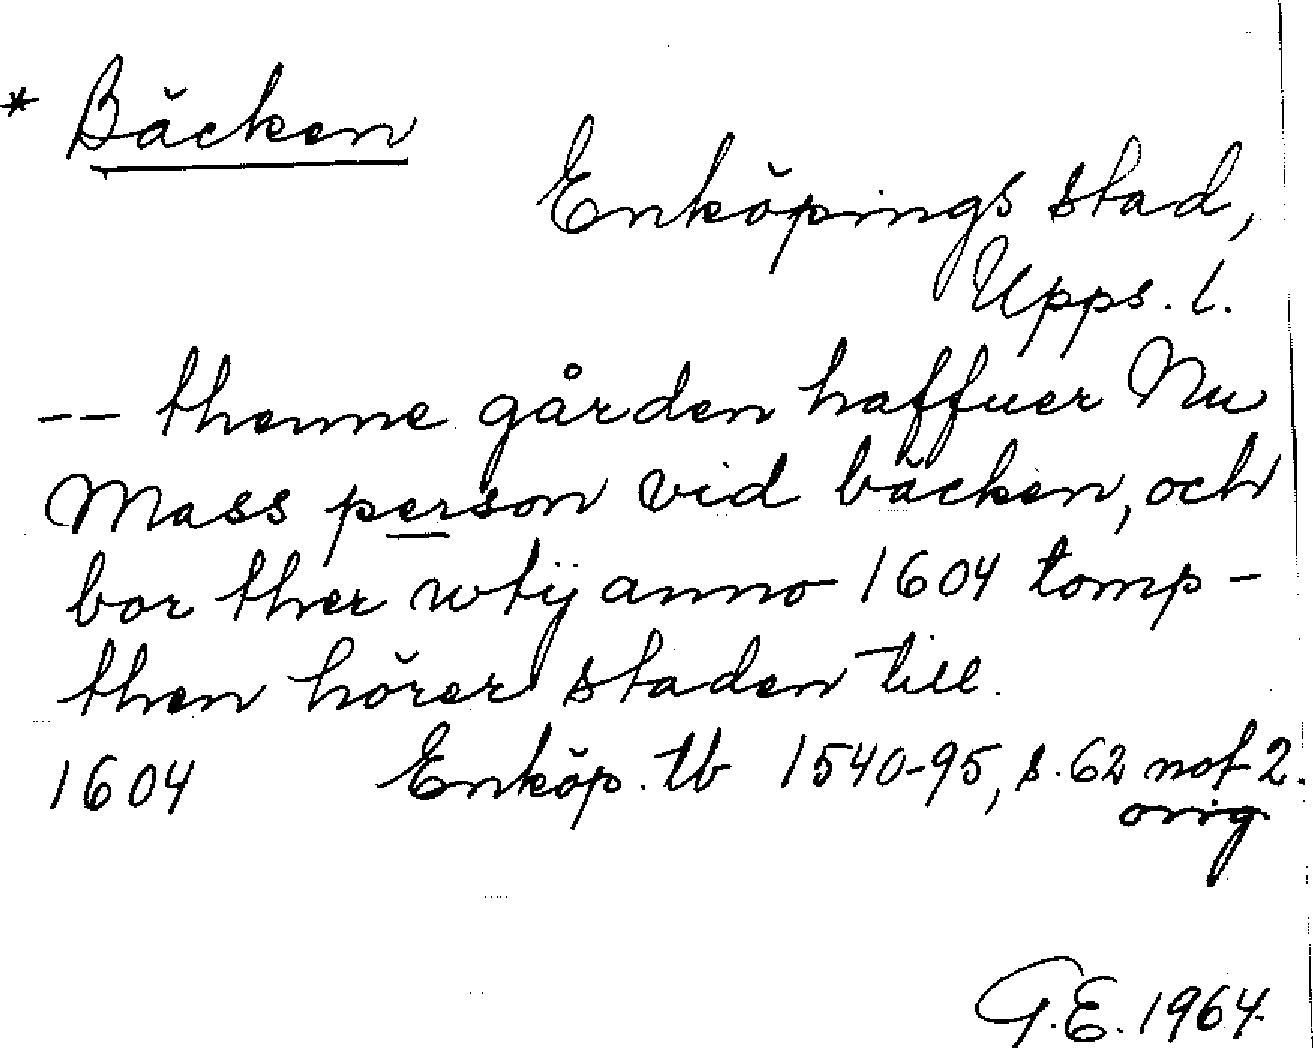 * Bäcken
Enköpings stad,
Upps. l.
-- thenne gården haffuer Nu
Mass person vid bäcken, och
bor ther wtij anno 1604 tomp-
then hörer staden till.
1604 Enköp. tb 1540-95, s. 62 not 2.
orig
G.E. 1964.